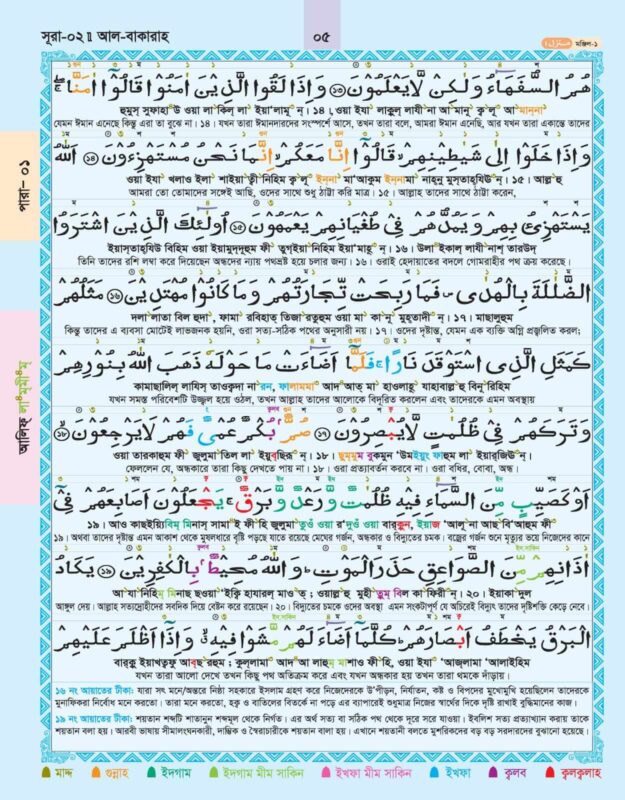 সূরা-০২ ॥ আল-বাকারাহ
০৫
منزل ١
মঞ্জিল-১
هُمُ السُّفَهَاءُ وَلٰكِنْ لَّا يَعْلَمُوْنَ ⑬ وَاِذَا لَقُوا الَّذِيْنَ اٰمَنُوْا قَالُوْٓا اٰمَنَّا
হুমুস্ সুফাহা উ ওয়া লা কিল্ লা ইয়া'লামূ ন্। ১৪। ওয়া ইযা লাক্বুল্ লাযী না আ মানূ ক্ব লূ আ মান্না
যেমন ঈমান এনেছে কিন্তু এরা তা বুঝে না। ১৪। যখন তারা ঈমানদারদের সংস্পর্শে আসে, তখন তারা বলে, আমরা ঈমান এনেছি, আর যখন তারা একান্তে তাদের
وَاِذَا خَلَوْا اِلٰى شَيٰطِيْنِهِمْ قَالُوْٓا اِنَّا مَعَكُمْ اِنَّمَا نَحْنُ مُسْتَهْزِءُوْنَ ⑭ اَللّٰهُ
ওয়া ইযা খলাও ইলা শাইয়া ত্বী নিহিম ক্ব লূ ইন্না মা'আকুম ইন্নামা নাহ্নু মুস্তাহ্যিঊ ন্। ১৫। আল্লা হু
আমরা তো তোমাদের সঙ্গেই আছি, ওদের সাথে শুধু ঠাট্টা করি মাত্র। ১৫। আল্লাহ তাদের সাথে ঠাট্টা করেন,
يَسْتَهْزِئُ بِهِمْ وَيَمُدُّهُمْ فِيْ طُغْيَانِهِمْ يَعْمَهُوْنَ ⑮ اُولٰٓئِكَ الَّذِيْنَ اشْتَرَوُا
ইয়াস্তাহ্যিউ বিহিম ওয়া ইয়ামুদ্দুহুম ফী তুগ্ইয়া নিহিম ইয়া'মাহূ ন্। ১৬। উলা ইকাল্ লাযী নাশ্ তারউদ্
তিনি তাদের রশি লম্বা করে দিয়েছেন অন্ধদের ন্যায় পথভ্রষ্ট হয়ে চলার জন্য। ১৬। ওরাই হেদায়াতের বদলে গোমরাহীর পথ ক্রয় করেছে।
الضَّلٰلَةَ بِالْهُدٰى فَمَا رَبِحَتْ تِّجَارَتُهُمْ وَمَا كَانُوْا مُهْتَدِيْنَ ⑯ مَثَلُهُمْ
দলা লাতা বিল হুদা, ফামা রবিহাত্ তিজা রতুহুম ওয়া মা কা নূ মুহ্তাদী ন্। ১৭। মাছালুহুম
কিন্তু তাদের এ ব্যবসা মোটেই লাভজনক হয়নি, ওরা সত্য-সঠিক পথের অনুসারী নয়। ১৭। ওদের দৃষ্টান্ত, যেমন এক ব্যক্তি অগ্নি প্রজ্বলিত করল;
كَمَثَلِ الَّذِى اسْتَوْقَدَ نَارًا فَلَمَّآ اَضَآءَتْ مَا حَوْلَهٗ ذَهَبَ اللّٰهُ بِنُوْرِهِمْ
কামাছালিল্ লাযিস্ তাওক্বদা না রন, ফালাম্মা আদ আত্ মা হাওলাহূ যাহাবাল্লা হু বিনূ রিহিম
যখন সমস্ত পরিবেশটি উজ্জ্বল হয়ে ওঠল, তখন আল্লাহ তাদের আলোকে বিদূরিত করলেন এবং তাদেরকে এমন অবস্থায়
وَتَرَكَهُمْ فِيْ ظُلُمٰتٍ لَّا يُبْصِرُوْنَ ⑰ صُمٌّۢ بُكْمٌ عُمْيٌ فَهُمْ لَا يَرْجِعُوْنَ ⑱
ওয়া তারকাহুম ফী জুলুমা তিল লা ইয়ুবছিরূ ন্। ১৮। ছুম্মুম বুকমুন 'উমইয়ুং ফাহুম লা ইয়ার্জিঊ ন্।
ফেললেন যে, অন্ধকারে তারা কিছু দেখতে পায় না। ১৮। ওরা প্রত্যাবর্তন করবে না। ওরা বধির, বোবা, অন্ধ।
اَوْ كَصَيِّبٍ مِّنَ السَّمَآءِ فِيْهِ ظُلُمٰتٌ وَّرَعْدٌ وَّبَرْقٌ يَجْعَلُوْنَ اَصَابِعَهُمْ فِيْٓ
১৯। আও কাছইয়্যিবিম্ মিনাস্ সামা ই ফী হি জুলুমা তুওঁ ওয়া র'দুওঁ ওয়া বার্কুন, ইয়াজ 'আলূ না আছ বি'আহুম ফী
১৯। অথবা তাদের দৃষ্টান্ত এমন আকাশ থেকে মুষলধারে বৃষ্টি পড়ছে যাতে রয়েছে মেঘের গর্জন, অন্ধকার ও বিদ্যুতের চমক। বজ্রের গর্জন শুনে মৃত্যুর ভয়ে নিজেদের কানে
اٰذَانِهِمْ مِّنَ الصَّوَاعِقِ حَذَرَ الْمَوْتِ وَاللّٰهُ مُحِيْطٌۢ بِالْكٰفِرِيْنَ ⑲ يَكَادُ
আ যা নিহিম্ মিনাছ ছওয়া 'ইক্বি হাযারল্ মাও ত্; ওয়াল্লা হু মুহী তুম্ বিল কা ফিরী ন্। ২০। ইয়াকা দুল
আঙ্গুল দেয়। আল্লাহ সত্যদ্রোহীদের সবদিক দিয়ে বেষ্টন করে রয়েছেন। ২০। বিদ্যুতের চমকে ওদের অবস্থা এমন সংকটাপূর্ণ যে অচিরেই বিদ্যুৎ তাদের দৃষ্টিশক্তি কেড়ে নেবে।
الْبَرْقُ يَخْطَفُ اَبْصَارَهُمْ كُلَّمَآ اَضَآءَ لَهُمْ مَّشَوْا فِيْهِ وَاِذَآ اَظْلَمَ عَلَيْهِمْ
বার্কু ইয়াখত্বফু আবছ রহুম; কুল্লামা আদ আ লাহুম্ মাশাও ফী হি, ওয়া ইযা 'আজ্লামা 'আলাইহিম
যখন তারা আলো দেখে তখন কিছু পথ অতিক্রম করে এবং যখন অন্ধকার হয় তখন তারা থমকে দাঁড়ায়।
১৬ নং আয়াতের টীকা: যারা সৎ মনে/অন্তরে নিষ্ঠা সহকারে ইসলাম গ্রহণ করে নিজেদেরকে উৎপীড়ন, নির্যাতন, কষ্ট ও বিপদের মুখোমুখি হয়েছিলেন তাদেরকে
মুনাফিকরা নির্বোধ মনে করতো। তারা মনে করতো, হক্ব ও বাতিলের বিতর্কে না পড়ে এর ব্যাপারেই শুধুমাত্র নিজের স্বার্থের দিকে দৃষ্টি রাখাই বুদ্ধিমানের কাজ।
১৯ নং আয়াতের টীকা: শয়তান শব্দটি শাতানুন শব্দমূল থেকে নির্গত। এর অর্থ সত্য বা সঠিক পথ থেকে দূরে সরে যাওয়া। ইবলিশ সত্য প্রত্যাখ্যান করায় তাকে
শয়তান বলা হয়। আরবী ভাষায় সীমালংঘনকারী, দাম্ভিক ও স্বৈরাচারীকে শয়তান বালা হয়। এখানে শয়তানী বলতে মুশরিকদের বড় বড় সরদারদের বুঝানো হয়েছে।
মাদ্দ গুন্নাহ ইদগাম ইদগাম মীম সাকিন ইখফা মীম সাকিন ইখফা ক্বলব ক্বলক্বলাহ
পারা- ০১
আলিফ্ লা ম্মী ম্